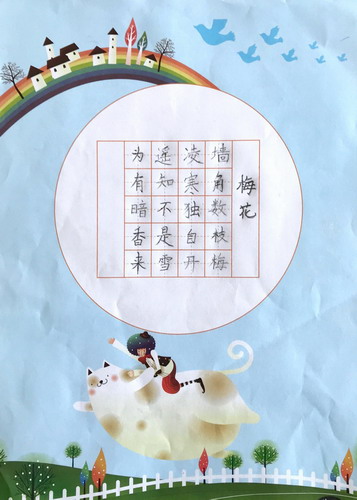 梅花
墙角数枝梅
凌寒独自丹
遥知不是雪
为有暗香来